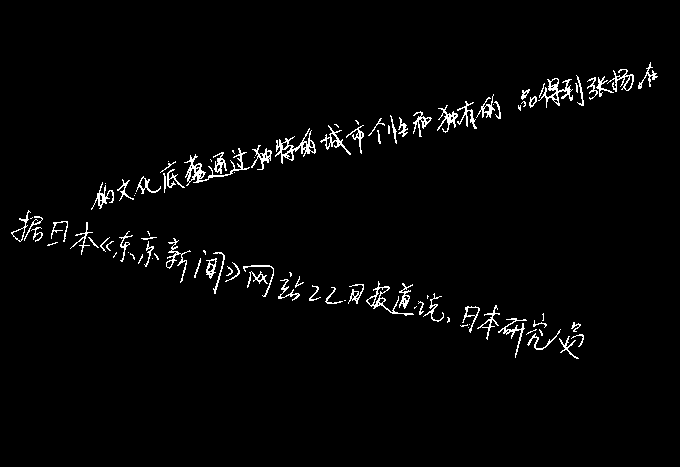 的文化底蕴通过独特的城市个性和独有的 品得到张扬在
据日本《东京新闻》网站22日报道说,日本研究人员